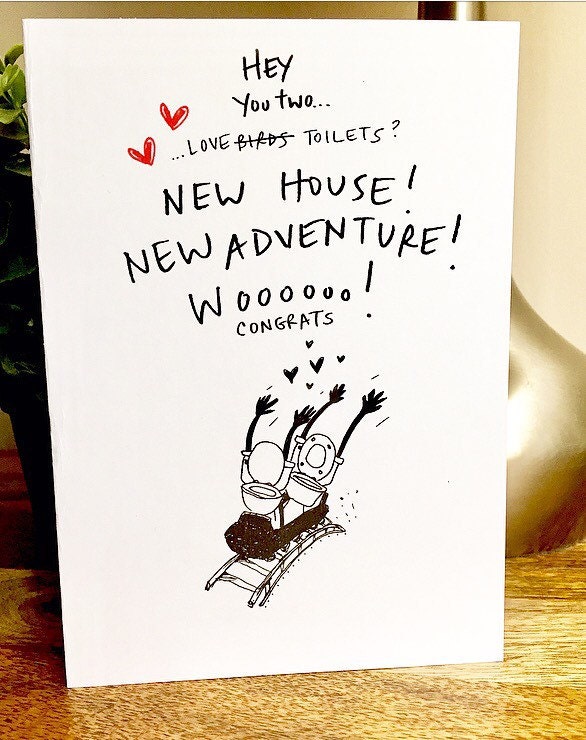 HEY
You two...
...LOVE BIRDS TOILETS?
NEW HOUSE!
NEW ADVENTURE!
Woooooo!
CONGRATS